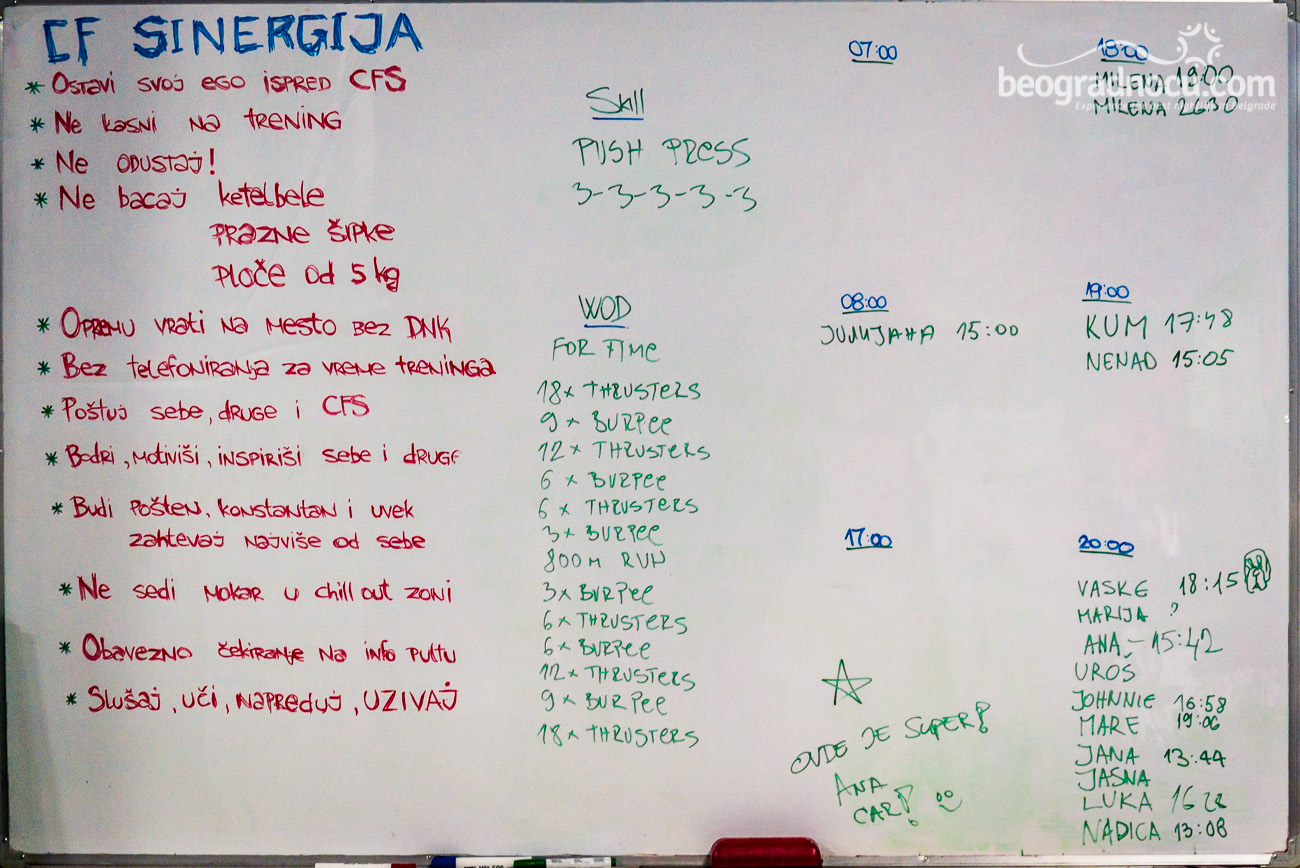 CF SINERGIJA
* Ostavi svoj ego ispred CFS
* Ne kasni na trening
* Ne odustaj!
* Ne bacaj ketelbele
prazne šipke
ploče od 5 kg
* Opremu vrati na mesto bez DNK
* Bez telefoniranja za vreme treninga
* Poštuj sebe, druge i CFS
* Bodri, motiviši, inspiriši sebe i druge
* Budi pošten, konstantan i uvek
zahtevaj najviše od sebe
* Ne sedi mokar u chill out zoni
* Obavezno čekiranje na info pultu
* Slušaj, uči, napreduj, UZIVAJ
Skill
PUSH PRESS
3-3-3-3-3
WOD
FOR TIME
18x THRUSTERS
9 x BURPEE
12x THRUSTERS
6 x BURPEE
6 x THRUSTERS
3x BURPEE
800m RUN
3x BURPEE
6x THRUSTERS
6x BURPEE
12x THRUSTERS
9x BURPEE
18x THRUSTERS
07:00
08:00
ЈИЛИЈАНА 15:00
17:00
OVDE JE SUPER!
ANA
CAR!
18:00
MILENA 19:00
MILENA 26:30
19:00
KUM 17:48
NENAD 15:05
20:00
VASKE 18:15
MARIJA ?
ANA - 15:42
UROŠ
JOHNNIE 16:58
MARE 19:06
JANA 13:44
JASNA
LUKA 16 22
NADICA 13:08
beogradnocu.com